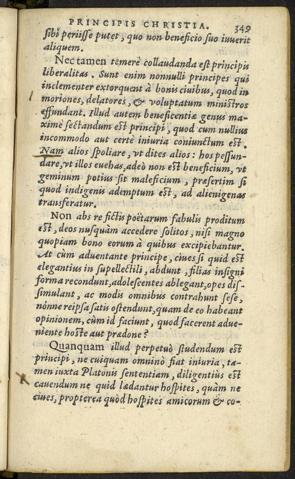 PRINCIPIS CHRISTIA. 349
sibi periisse putet, quo non beneficio suo iuverit
aliquem.
Nec tamen temerè collaudanda est principis
liberalitas. Sunt enim nonnulli principes qui
inclementer extorquẽt à bonis civibus, quod in
moriones, delatores, & voluptatum ministros
effundant. Illud autem beneficentiæ genus ma-
ximè sectandum est principi, quod cum nullius
incommodo aut certè iniuria coniunctum est.
Nam alios spoliare, vt dites alios: hos pessun-
dare, vt illos euehas, adeò non est beneficium, vt
geminum potius sit maleficium, præsertim si
quod indigenis ademptum est, ad alienigenas
transferatur.
Non abs re fictis poëtarum fabulis proditum
est, deos nusquàm accedere solitos, nisi magno
quopiam bono eorum à quibus excipiebantur.
At cùm aduentante principe, ciues si quid est
elegantius in supellectili, abdunt, filias insigni
forma recondunt, adolescentes ablegant, opes dis-
simulant, ac modis omnibus contrahunt sese,
nónne reipsa satis ostendunt, quam de eo habeant
opinionem, cùm id faciunt, quod facerent adue-
niente hoste aut prædone?
Quanquam illud perpetuò studendum est
principi, ne cuiquam omninò fiat iniuria, ta-
men iuxta Platonis sententiam, diligentiùs est
cauendum ne quid lædantur hospites, quàm ne
ciues, propterea quòd hospites amicorum & co-